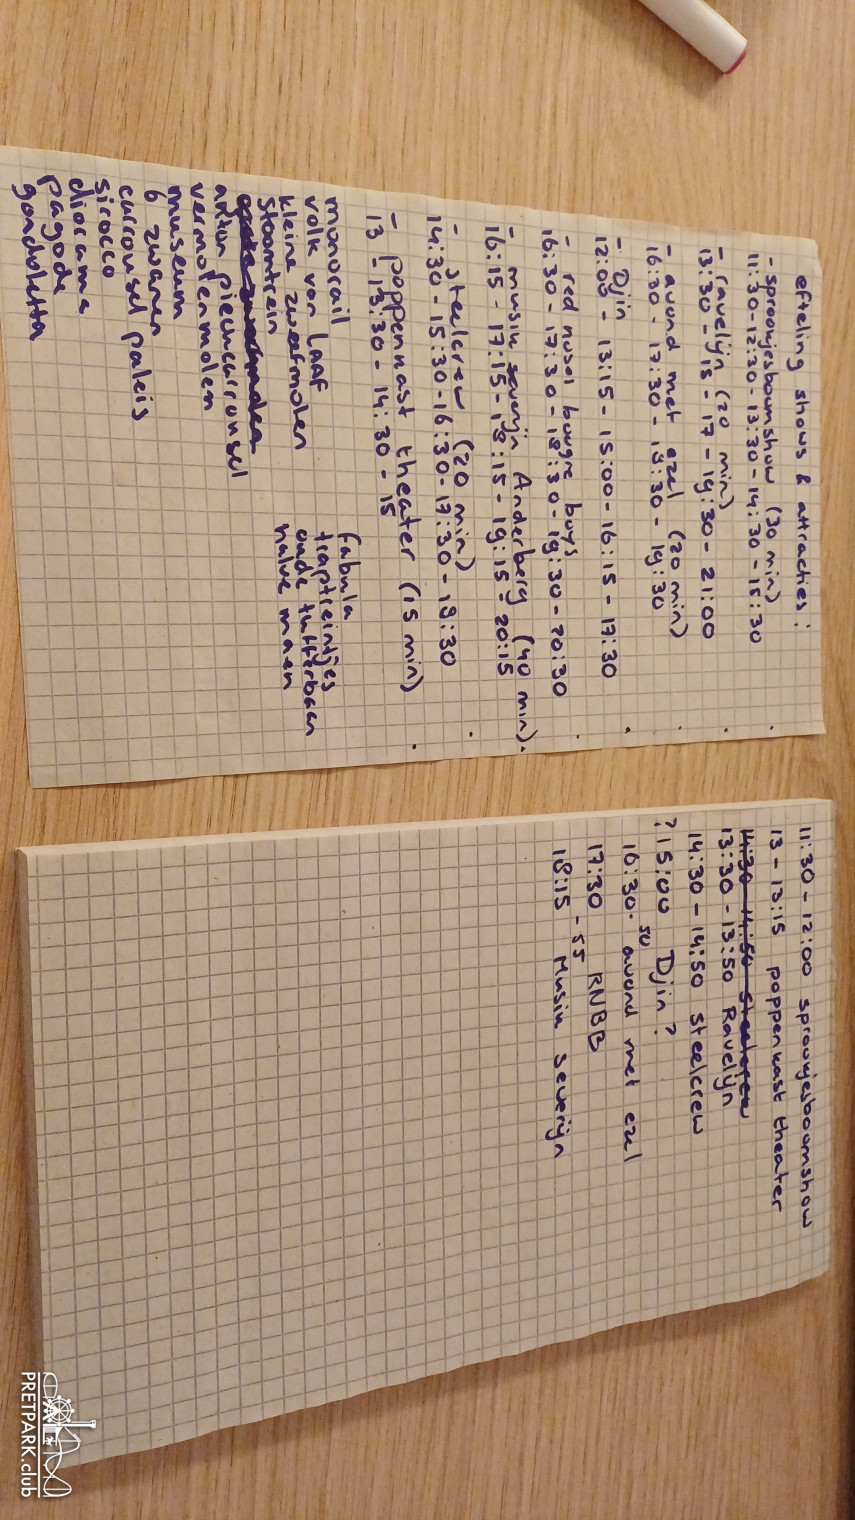 efteling shows & attracties:
- sprookjesboomshow (30 min)
11:30-12:30-13:30-14:30-15:30
- ravelijn (20 min)
13:30-15-17-19:30-21:00
- avond met ezel (20 min)
16:30-17:30-18:30-19:30
- Djin
12:00-13:15-15:00-16:15-17:30
- red nosel bougre buoys
16:30-17:30-18:30-19:30-20:30
- musik severijn Anderberg (40 min).
16:15-17:15-18:15-19:15-20:15
- steelcrew (20 min)
14:30-15:30-16:30-17:30-18:30
- poppenkast theater (15 min)
13-13:30-14:30-15
monorail
volk van Laaf
kleine zweefmolen
stoomtrein
anton pieckcarrousel
vermolenmolen
museum
6 zwanen
carrousel paleis
sirocco
diorama
pagode
gondoletta
fabula
traptreintjes
oude tufferbaan
halve maen
11:30-12:00 sprookjesboomshow
13-13:15 poppenkast theater
14:30-14:50 Steelcrew
13:30-13:50 Ravelijn
14:30-14:50 steelcrew
? 15:00 Djin?
16:30-50 avond met ezel
17:30-55 RNBB
18:15 Musik Severijn
PRETPARK.club